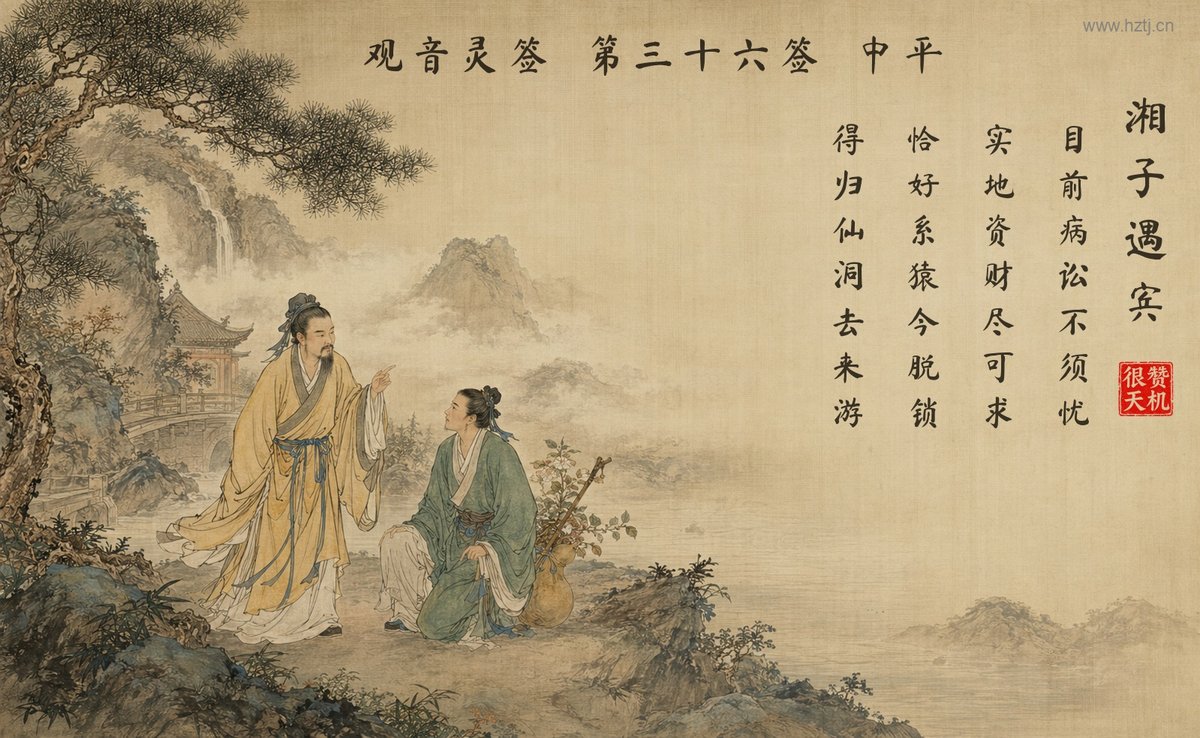 www.hztj.cn
观音灵签 第三十六签 中平
湘子遇宾
目前病讼不须忧
实地资财尽可求
恰好系猿今脱锁
得归仙洞去来游
赞机
很天